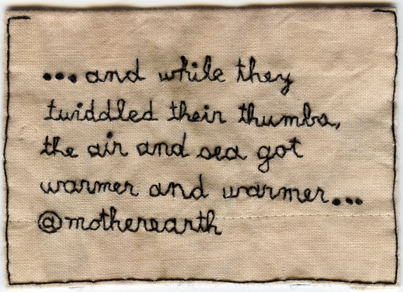 ...and while they
twiddled their thumbs,
the air and sea got
warmer and warmer...
@motherearth